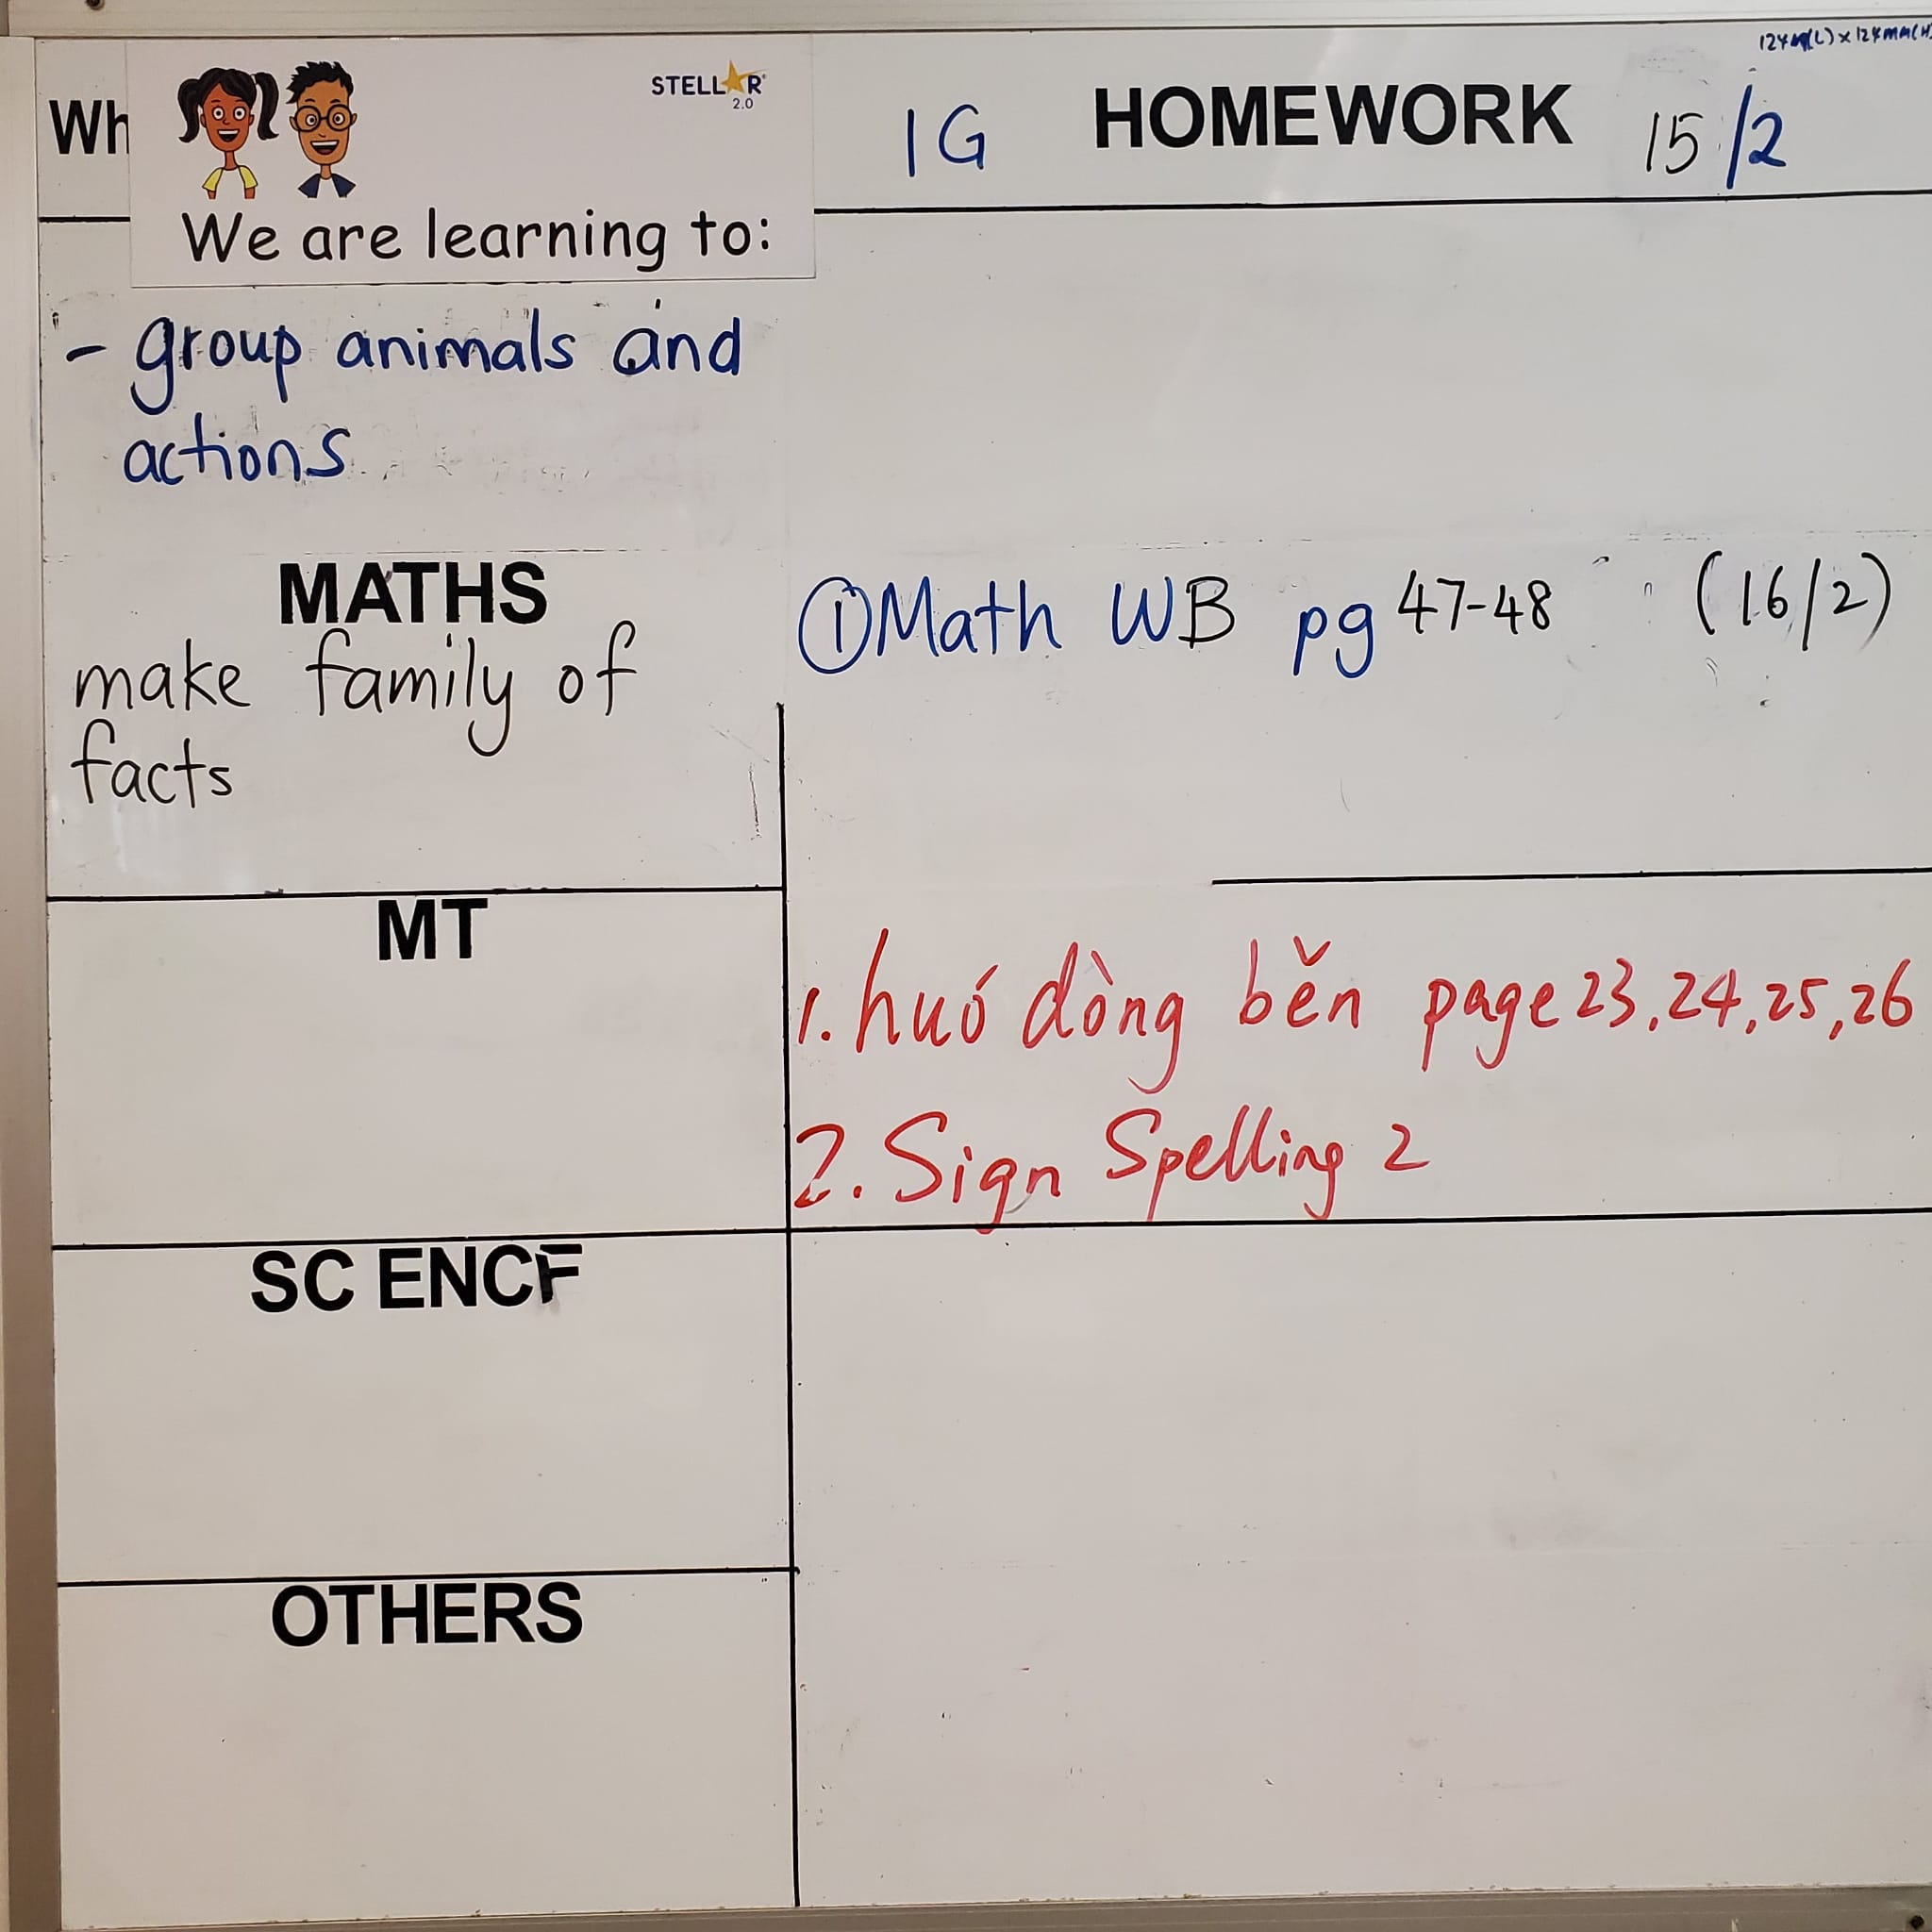 124m(L) x 124mm(H)
STELLAR
2.0
Wh
1G HOMEWORK 15/2
We are learning to:
- group animals and
actions
MATHS
make family of
facts
① Math WB pg 47-48 (16/2)
MT
1. huó dòng běn page 23, 24, 25, 26
2. Sign Spelling 2
SC ENCF
OTHERS